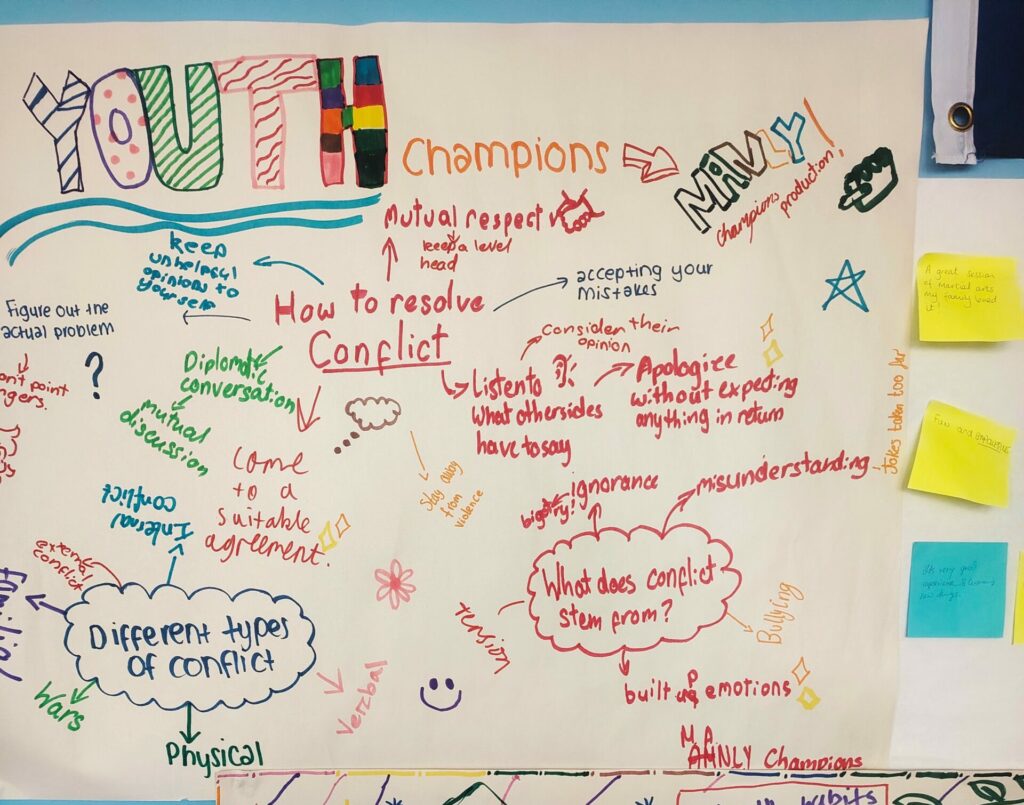 YOUTH
Champions
MINLY!
champions production!
Mutual respect
keep a level
head
keep
unhelpful
opinions to
yourself
accepting your
mistakes
How to resolve
Conflict
Figure out the
actual problem
?
on't point
ngers.
Diplomatic
conversation
mutual
discussion
Consider their
opinion
Listen to
what other sides
have to say
Apologize
without expecting
anything in return
come
to a
suitable
agreement.
Stay away
from
violence
Jokes taken too far
Internal
conflict
external
conflict
Familial
Different types
of conflict
Wars
Physical
Verbal
ignorance
bigotry!
misunderstanding
What does conflict
stem from?
tension
Bullying
built up emotions
M.A.
NLY Champions
habits
A great session
of Martial arts
my family loved
it!
Fun and
Its very good